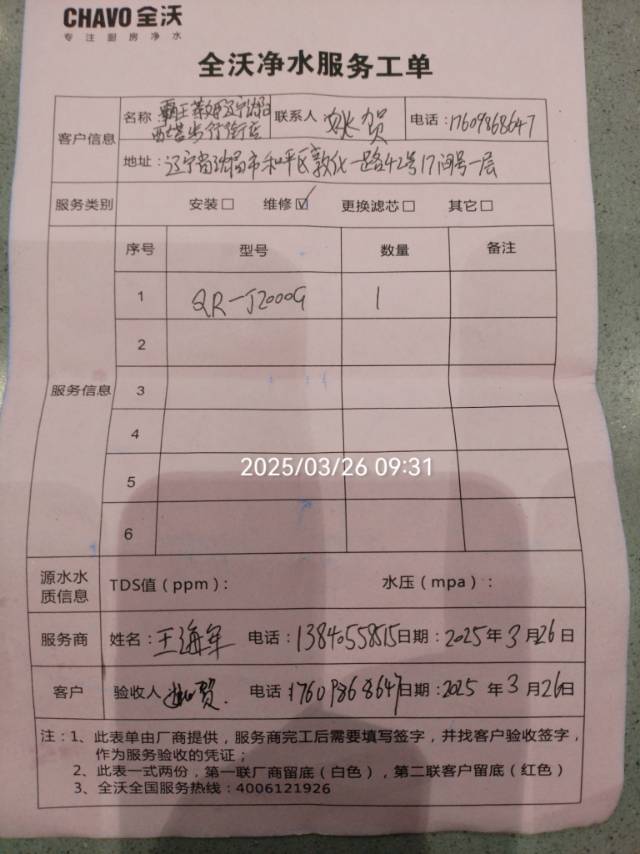 CHAVO 全沃
专注厨房净水
全沃净水服务工单
客户信息
名称 霸王茶姬辽宁沈阳
西塔步行街店
联系人 姚贺
电话:17609868647
地址:辽宁省沈阳市和平区敦化一路42号17门号一层
服务类别 安装□ 维修☑ 更换滤芯□ 其它□
服务信息
序号 型号 数量 备注
1 QR-J2000G 1
2
3
4
5
6
2025/03/26 09:31
源水水
质信息
TDS值(ppm): 水压(mpa):
服务商 姓名:王海军 电话:13840558515 日期:2025年3月26日
客户 验收人 姚贺. 电话:17609868647 日期:2025年3月26日
注:1、此表单由厂商提供,服务商完工后需要填写签字,并找客户验收签字,
作为服务验收的凭证;
2、此表一式两份,第一联厂商留底(白色),第二联客户留底(红色)
3、全沃全国服务热线:4006121926